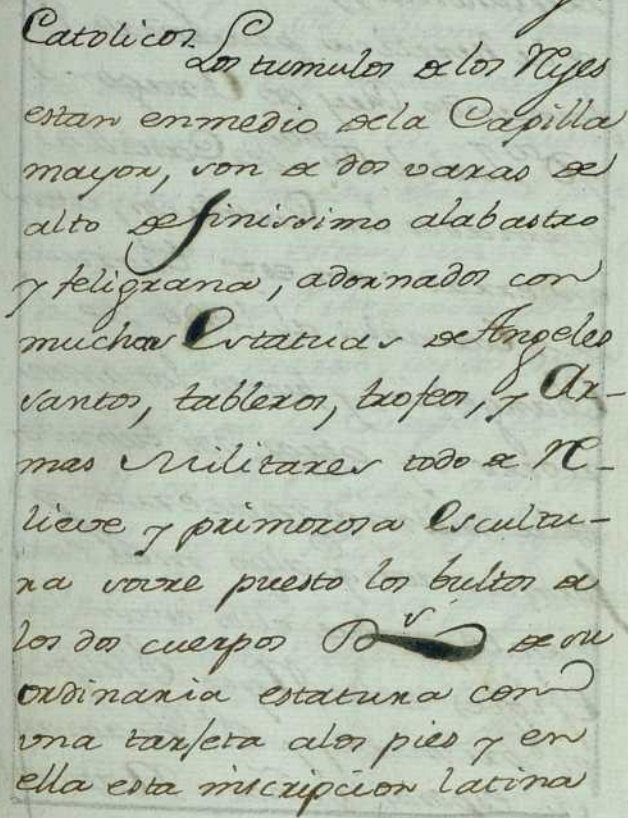 Catolicos.
Los tumulos de los Reyes
estan enmedio dela Capilla
mayor, son de dos varas de
alto de finissimo alabastro
y feligrana, adornados con
muchas Estatuas de Angeles
santos, tableros, trofeos, y Ar-
mas Militares todo de Re-
lieve y primorosa Escultu-
ra sovre puesto los bultos de
los dos cuerpos Rs de su
ordinaria estatura con
una tarjeta alos pies y en
ella esta inscripcion latina